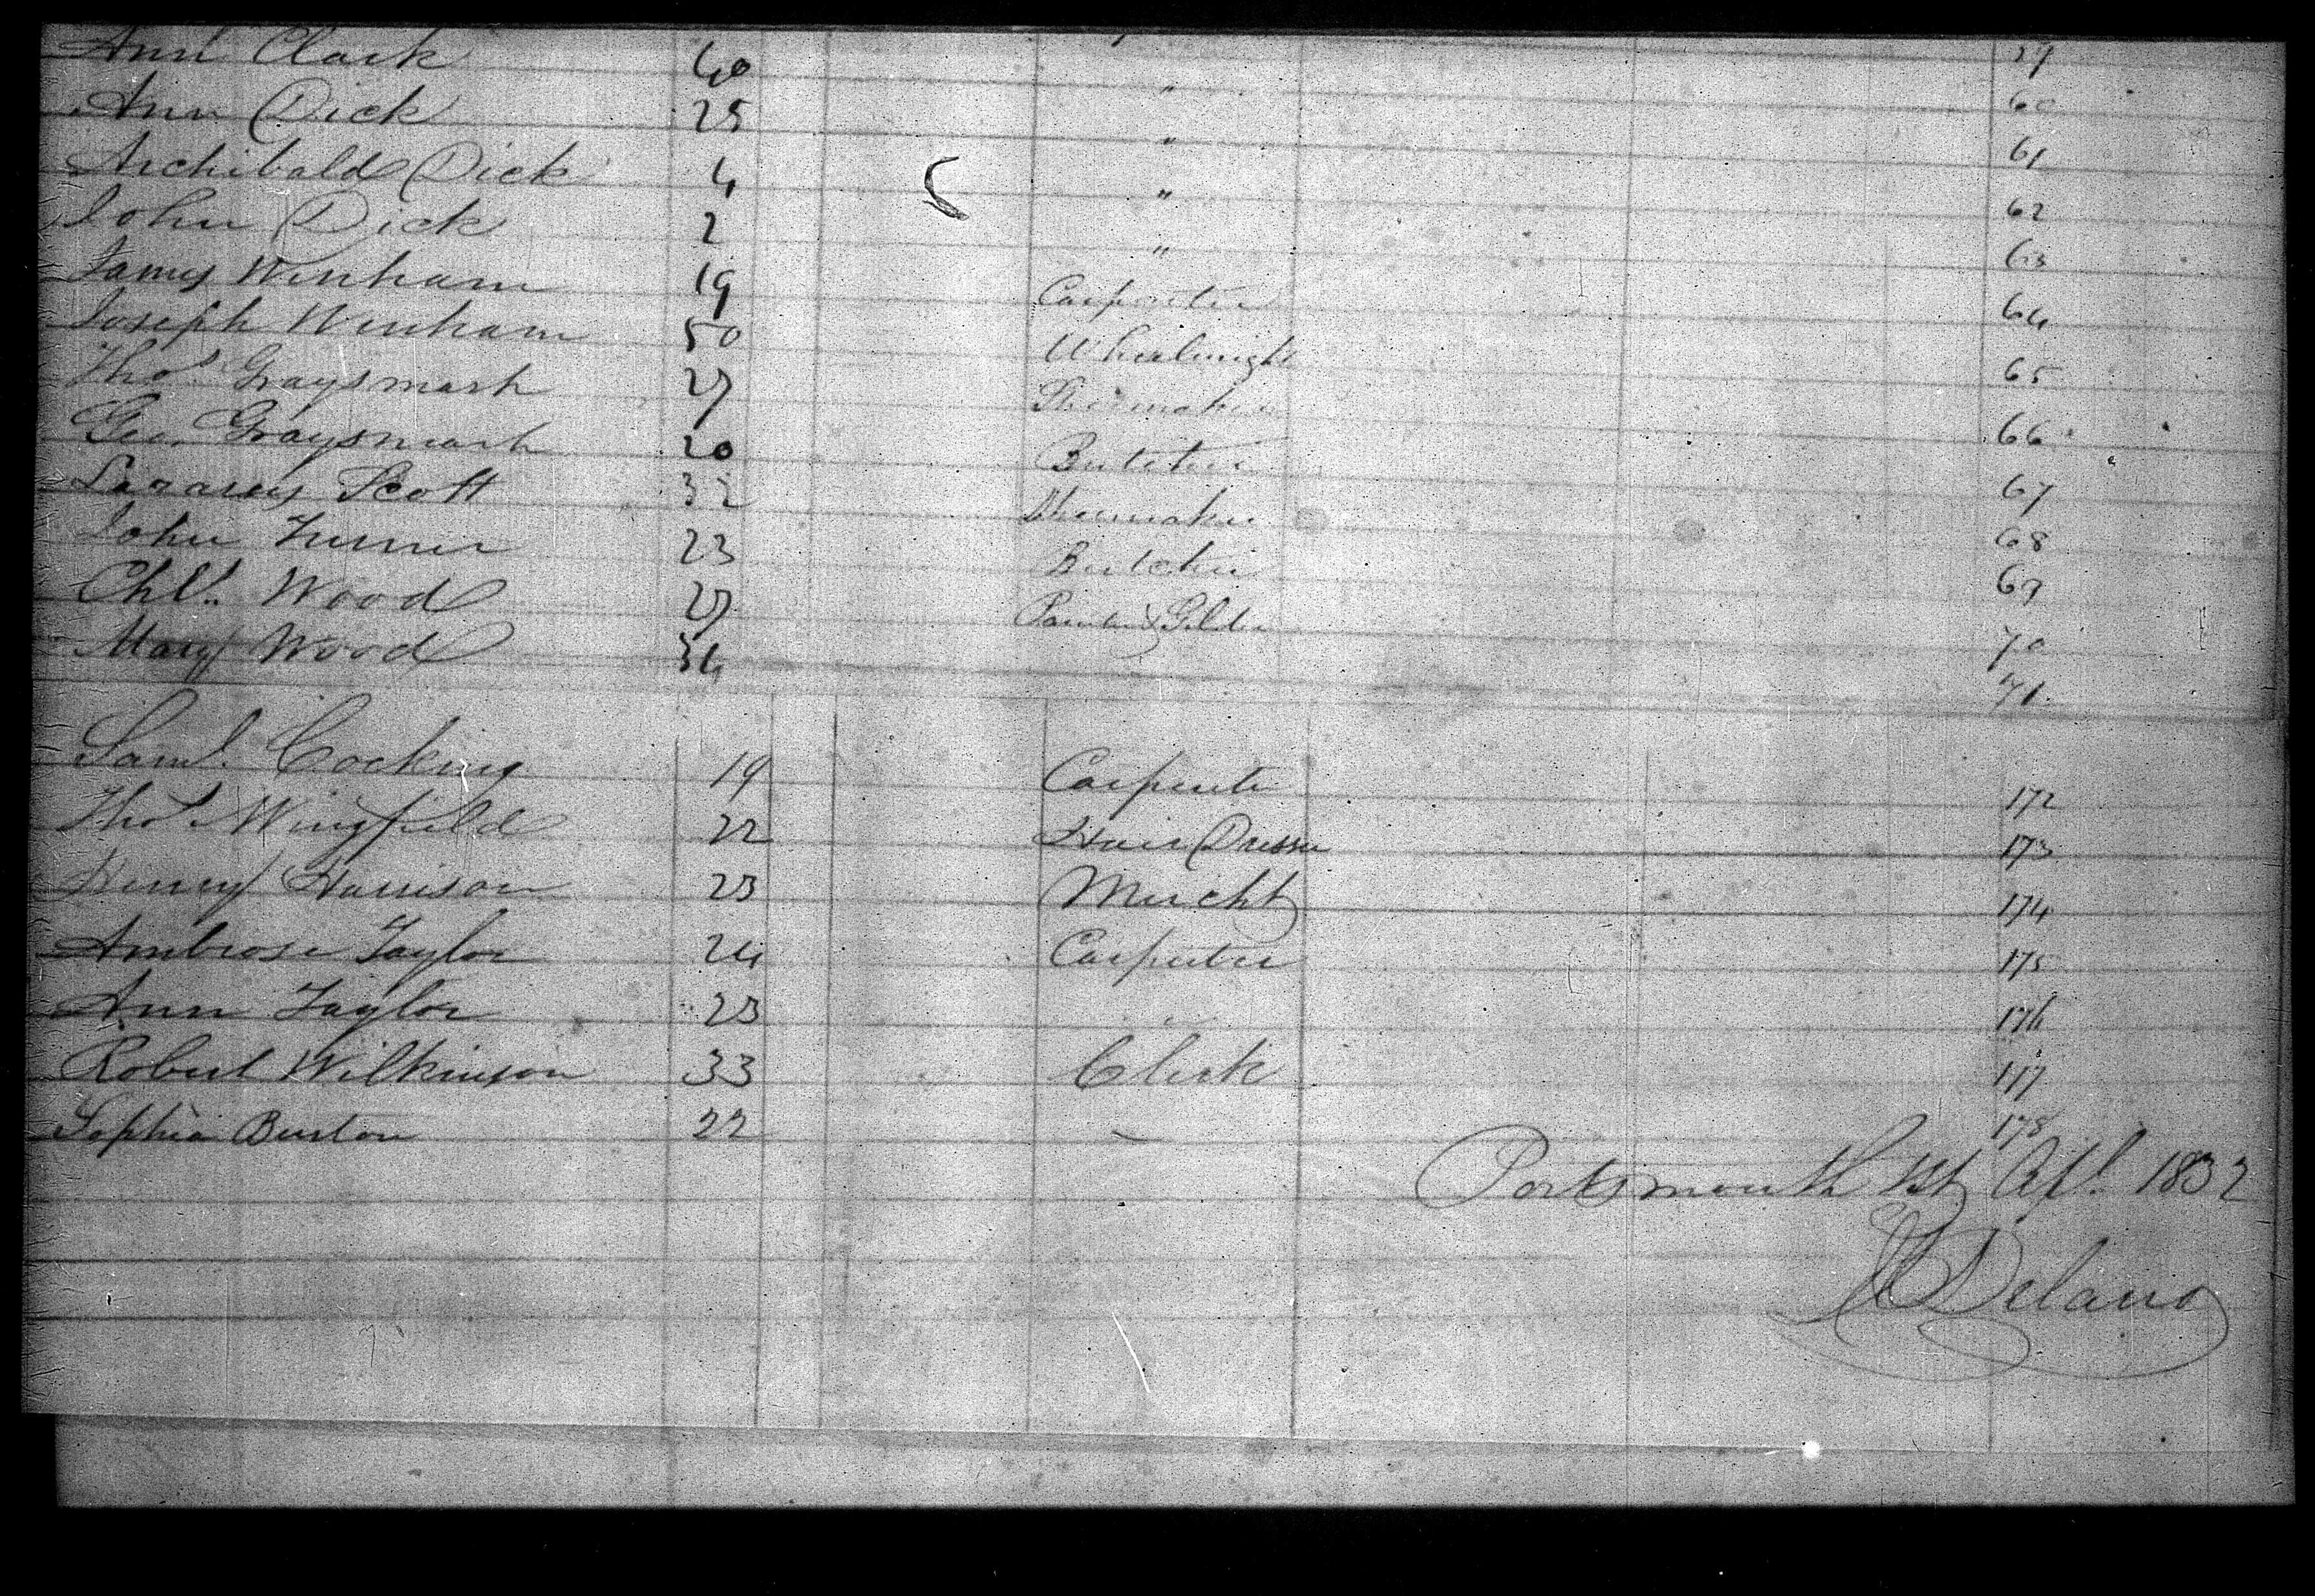 Ann Clark 40 59
Ann Dick 25 " 60
Archibald Dick 4 " 61
John Dick 2 " 62
James Winham 19 " 63
Joseph Winham 50 Carpenter 64
Thos Graysmark 27 Wheelwright 65
Geo. Graysmark 20 Shoemaker 66
Scott 32 Butcher 67
John Turner 23 Shoemaker 68
Wood 27 Butcher 69
Mary Wood 34 Painter & Gilder 70
71
Saml. Cocking 19 Carpenter 172
Thos Wingfield 22 Hair Dresser 173
Henry Harrison 23 Mercht 174
Ambrose Taylor 24 Carpenter 175
Ann Taylor 23 " 176
Robert Wilkinson 33 Clerk 177
Sophia Burton 22 — 178
Portsmouth 1st Apl. 1832
Delano